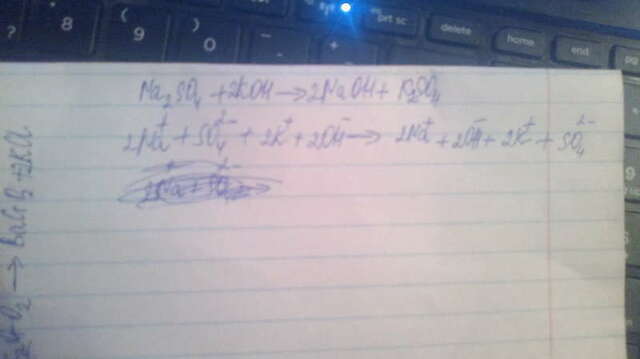 * 8 ( 9 ) 0 - + prt sc delete home end pg
Na₂SO₄ + 2KOH → 2NaOH + K₂SO₄
2Na⁺ + SO₄²⁻ + 2K⁺ + 2OH⁻ → 2Na⁺ + 2OH⁻ + 2K⁺ + SO₄²⁻